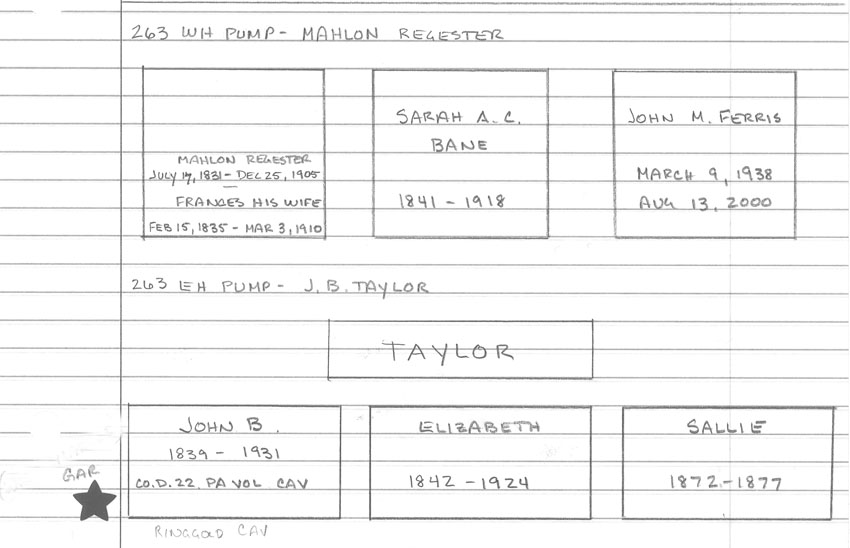 263 WH PUMP - MAHLON REGESTER
MAHLON REGESTER
JULY 17, 1831 - DEC 25, 1905
FRANCES HIS WIFE
FEB 15, 1835 - MAR 3, 1910
SARAH A. C.
BANE
1841 - 1918
JOHN M. FERRIS
MARCH 9, 1938
AUG 13, 2000
263 EH PUMP - J. B. TAYLOR
TAYLOR
JOHN B.
1839 - 1931
CO. D. 22. PA VOL CAV
ELIZABETH
1842 - 1924
SALLIE
1872 - 1877
GAR
RINGGOLD CAV